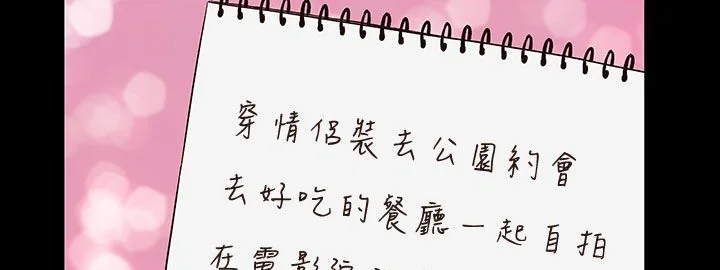 穿情侶裝去公園約會
去好吃的餐廳一起自拍
在電影院